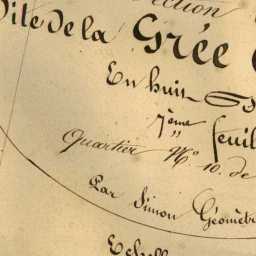 ection
Dite de la Grée
En huit
7ème feuil
Quartier No. 10. de
Par Simon Géomètr
Echell